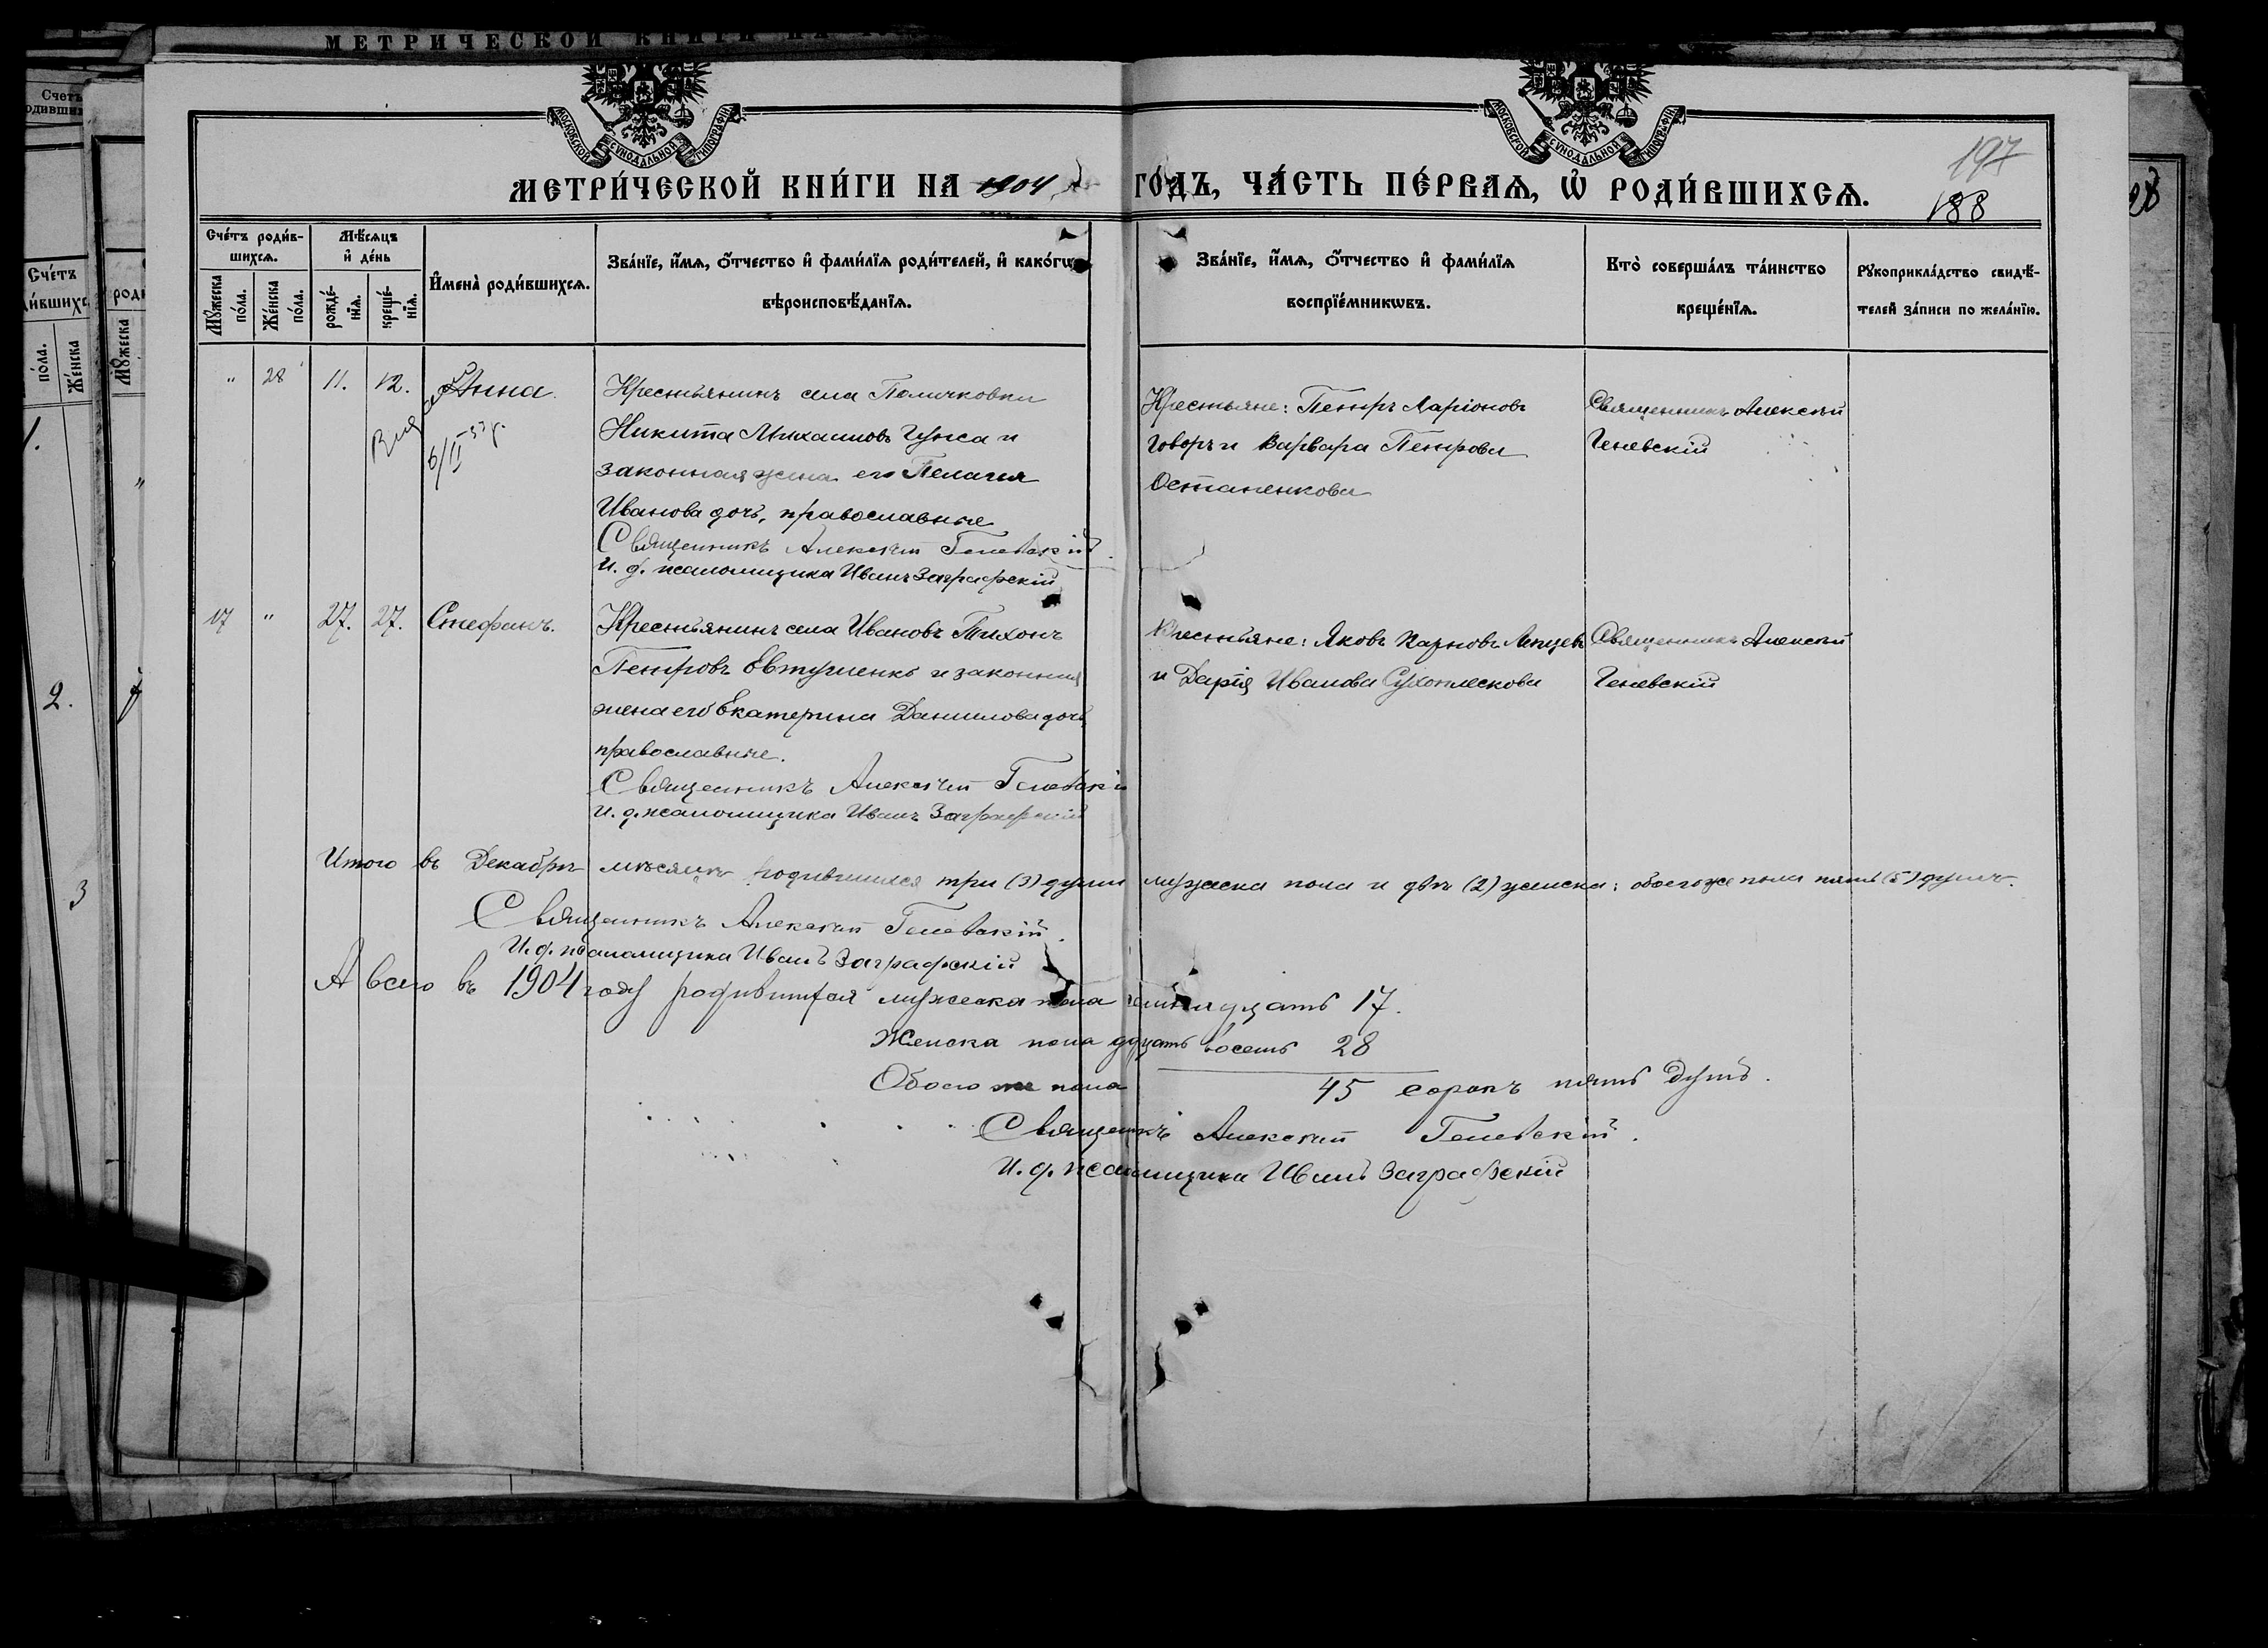 МЕТРИЧЕСКОЙ КНИГИ НА
МОСКОВСКОЙ СѴНОДАЛЬНОЙ ТИПОГРАФІИ
МОСКОВСКОЙ СѴНОДАЛЬНОЙ ТИПОГРАФІИ
МЕТРИ́ЧЕСКОЙ КНИ́ГИ НА 1904 ГО́ДЪ, ЧА́СТЬ ПЕ́РВАЯ, Ѡ РОДИ́ВШИХСЯ.
197
188
Сче́тъ роди́в-
шихся.
Мѣ́сяцъ
и де́нь
Мꙋжеска по́ла.
Же́нска по́ла.
рожде́-
нїя.
креще́-
нїя.
Имена̀ роди́вшихся.
Зва́нїе, и́мя, о́тчество и фами́лїя роди́телей, и како́гѡ
вѣроисповѣ́данїя.
Зва́нїе, и́мя, о́тчество и фами́лїя
воспрїе́мникѡвъ.
Кто̀ соверша́лъ та́инство
креще́нїя.
Рꙋкоприкла́дство свидѣ́-
телей за́писи по жела́нїю.
" 28 11. 12. Анна.
6/II-53 г.
Крестьянинъ села Поличковки
Никита Михаиловъ Гунса и
законная жена его Пелагия
Иванова дочь, православные
Священникъ Алексѣй Геневскій.
И. д. псаломщика Иванъ Заграфскій
Крестьяне: Петръ Ларіоновъ
Говоръ и Варвара Петрова
Остапенкова
Священникъ Алексѣй
Геневскій
17 " 27. 27. Стефанъ.
Крестьянинъ села Ивановъ Тихонъ
Петровъ Евтушенко и законная
жена его Екатерина Данилова дочь,
православные.
Священникъ Алексѣй Геневскій
И. д. псаломщика Иванъ Заграфскій
Крестьяне: Яковъ Карповъ
и Дарія Иванова Сухоплескова
Священникъ Алексѣй
Геневскій
Итого въ Декабрѣ мѣсяцѣ родившихся три (3) души мужеска пола и двѣ (2) женска: обоего же пола пять (5) душъ.
Священникъ Алексѣй Геневскій.
И. д. псаломщика Иванъ Заграфскій
А всего въ 1904 году родившихся мужеска пола семнадцать 17.
Женска пола двадцать восемь 28
Обоего же пола 45 сорокъ пять душъ.
Священникъ Алексѣй Геневскій.
И. д. псаломщика Иванъ Заграфскій